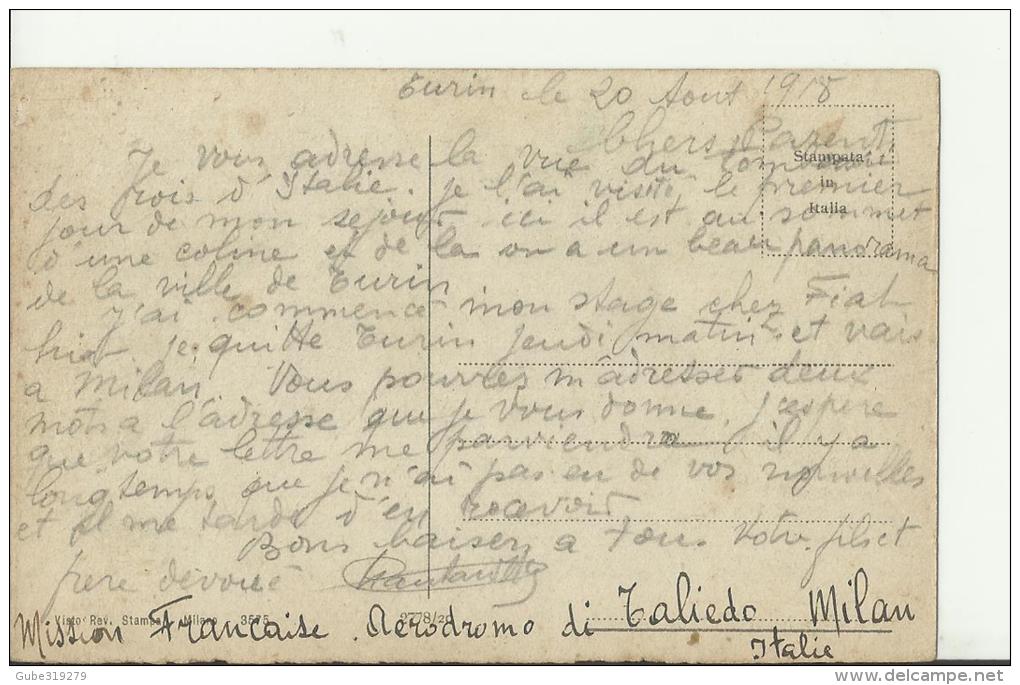 Turin le 20 Aout 1918
Chers Parents
Je vous adresse la vue du Tombeau
des rois d'Italie. je l'ai visité le premier
jour de mon sejour ici il est au sommet
d'une coline et de la on a un beau panorama
de la ville de Turin
J'ai commencé mon stage chez Fiat
hier. je quitte Turin jeudi matin et vais
a Milan Vous pourres m'adresser deux
mots a l'adresse que je vous donne. j'espere
que votre lettre me parviendra il y a
longtemps que je n'ai pas eu de vos nouvelles
et il me tarde d'en recevoir
Bons baisers a tous Votre fils et
frere devoué
Stampata
in
Italia
Visto Rev. Stampa Milano 3575 2778/20
Mission Francaise. Aerodromo di Taliedo Milan
Italie
Gube319279
delcampe.net